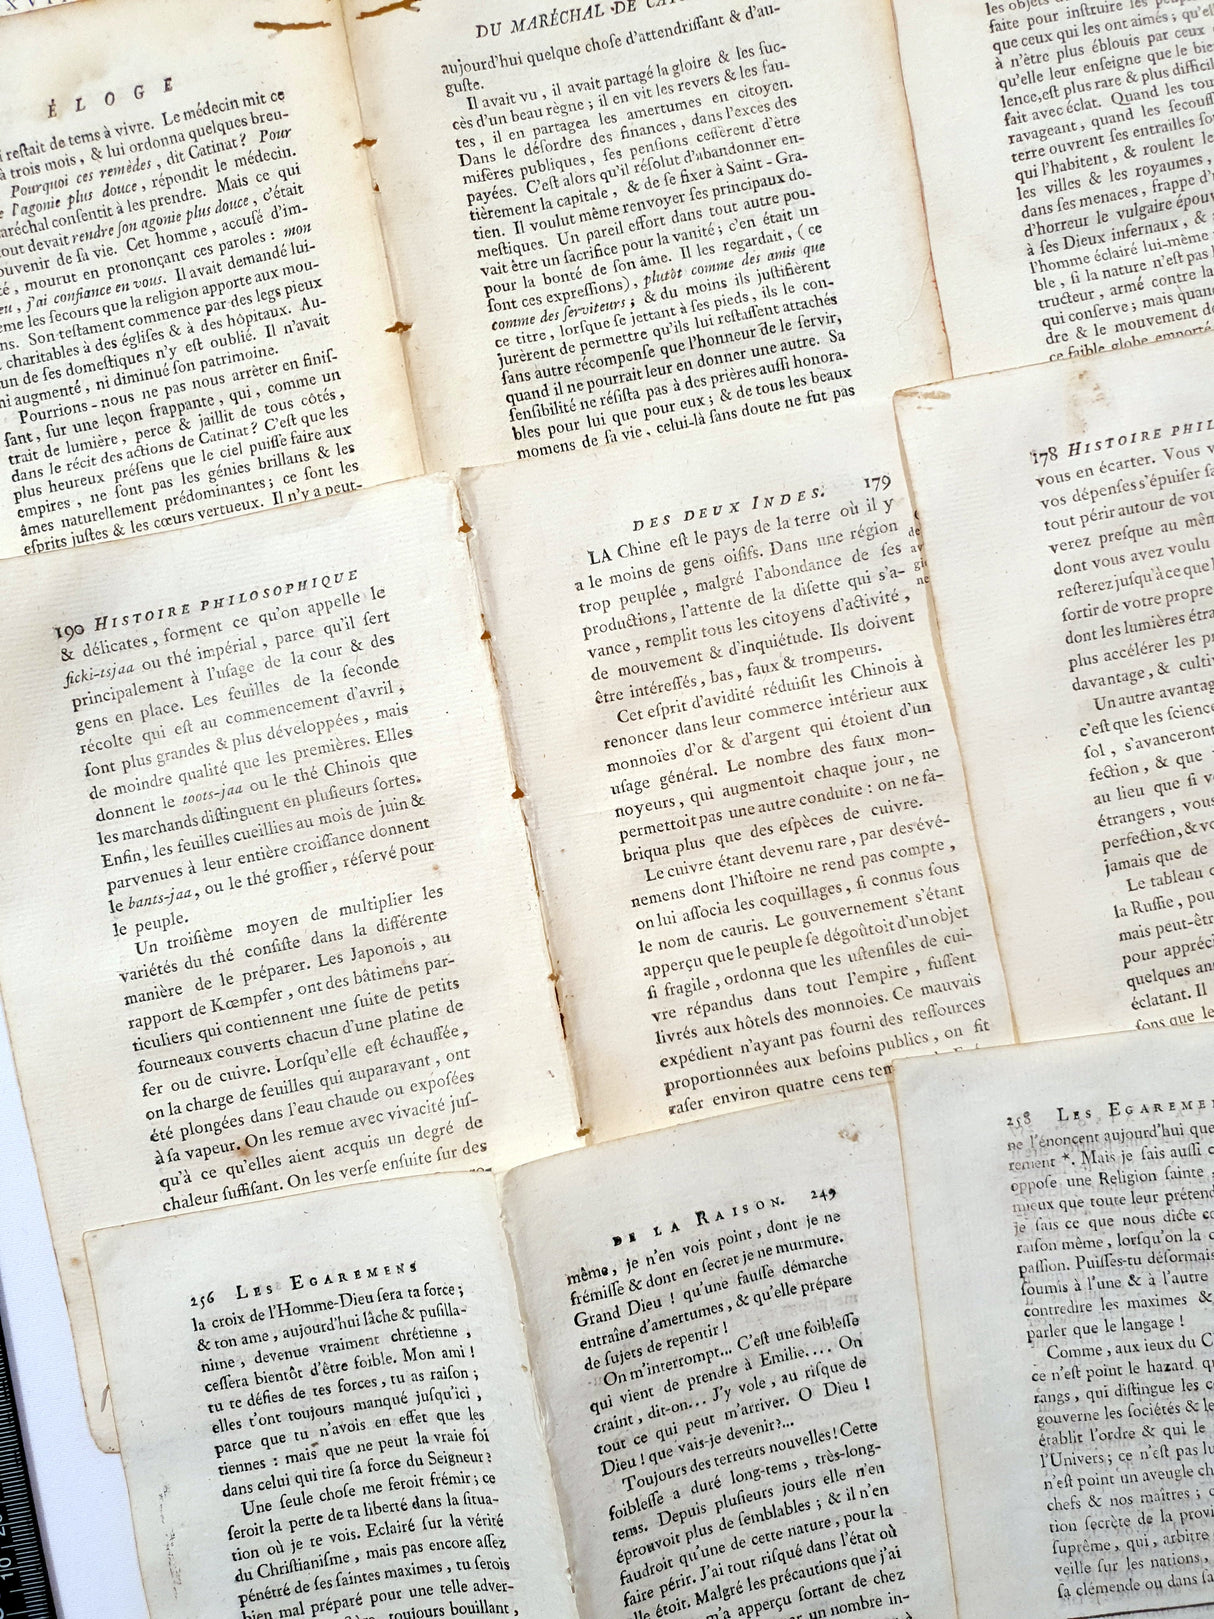 ÉLOGE
restait de tems à vivre. Le médecin mit ce
à trois mois, & lui ordonna quelques breu-
Pourquoi ces remèdes, dit Catinat? Pour
l'agonie plus douce, répondit le médecin.
maréchal consentit à les prendre. Mais ce qui
tout devait rendre son agonie plus douce, c'était
souvenir de sa vie. Cet homme, accusé d'im-
mourut en prononçant ces paroles: mon
j'ai confiance en vous. Il avait demandé lui-
même les secours que la religion apporte aux mou-
Son testament commence par des legs pieux
charitables à des églises & à des hôpitaux. Au-
un de ses domestiques n'y est oublié. Il n'avait
ni augmenté, ni diminué son patrimoine.
Pourrions-nous ne pas nous arrêter en finis-
sant, sur une leçon frappante, qui, comme un
trait de lumière, perce & jaillit de tous côtés,
dans le récit des actions de Catinat? C'est que les
plus heureux présens que le ciel puisse faire aux
empires, ne sont pas les génies brillans & les
âmes naturellement prédominantes; ce sont les
esprits justes & les cœurs vertueux. Il n'y a peut-
DU MARÉCHAL DE
aujourd'hui quelque chose d'attendrissant & d'au-
guste.
Il avait vu, il avait partagé la gloire & les suc-
cès d'un beau règne; il en vit les revers & les fau-
tes, il en partagea les amertumes en citoyen.
Dans le désordre des finances, dans l'excès des
misères publiques, ses pensions cessèrent d'être
payées. C'est alors qu'il résolut d'abandonner en-
tièrement la capitale, & de se fixer à Saint-Gra-
tien. Il voulut même renvoyer ses principaux do-
mestiques. Un pareil effort dans tout autre pou-
vait être un sacrifice pour la vanité; c'en était un
pour la bonté de son âme. Il les regardait, (ce
sont ces expressions), plutôt comme des amis que
comme des serviteurs; & du moins ils justifièrent
ce titre, lorsque se jettant à ses pieds, ils le con-
jurèrent de permettre qu'ils lui restassent attachés
sans autre récompense que l'honneur de le servir,
quand il ne pourrait leur en donner une autre. Sa
sensibilité ne résista pas à des prières aussi honora-
bles pour lui que pour eux; & de tous les beaux
momens de sa vie, celui-là sans doute ne fut pas
les objets
faite pour instruire les
que ceux qui les ont aimés; qu'el
à n'être plus éblouis par ceux
qu'elle leur enseigne que le bie
lence, est plus rare & plus difficil
fait avec éclat. Quand les tou
ravageant, quand les secouss
terre ouvrent ses entrailles
qui l'habitent, & roulent le
les villes & les royaumes,
dans ses menaces, frappe d'
d'horreur le vulgaire épouv
à ses Dieux infernaux, &
l'homme éclairé lui-même
ble, si la nature n'est pas
tructeur, armé contre la
qui conserve; mais quand
dre & le mouvement de
ce faible globe emporté
190 HISTOIRE PHILOSOPHIQUE
& délicates, forment ce qu'on appelle le
ficki-tsjaa ou thé impérial, parce qu'il sert
principalement à l'usage de la cour & des
gens en place. Les feuilles de la seconde
récolte qui est au commencement d'avril,
sont plus grandes & plus développées, mais
de moindre qualité que les premières. Elles
donnent le toots-jaa ou le thé Chinois que
les marchands distinguent en plusieurs sortes.
Enfin, les feuilles cueillies au mois de juin &
parvenues à leur entière croissance donnent
le bants-jaa, ou le thé grossier, réservé pour
le peuple.
Un troisième moyen de multiplier les
variétés du thé consiste dans la différente
manière de le préparer. Les Japonois, au
rapport de Kœmpfer, ont des bâtimens par-
ticuliers qui contiennent une suite de petits
fourneaux couverts chacun d'une platine de
fer ou de cuivre. Lorsqu'elle est échauffée,
on la charge de feuilles qui auparavant, ont
été plongées dans l'eau chaude ou exposées
à sa vapeur. On les remue avec vivacité jus-
qu'à ce qu'elles aient acquis un degré de
chaleur suffisant. On les verse ensuite sur des
DES DEUX INDES. 179
LA Chine est le pays de la terre où il y
a le moins de gens oisifs. Dans une région
trop peuplée, malgré l'abondance de ses
productions, l'attente de la disette qui s'a-
vance, remplit tous les citoyens d'activité,
de mouvement & d'inquiétude. Ils doivent
être intéressés, bas, faux & trompeurs.
Cet esprit d'avidité réduisit les Chinois à
renoncer dans leur commerce intérieur aux
monnoies d'or & d'argent qui étoient d'un
usage général. Le nombre des faux mon-
noyeurs, qui augmentoit chaque jour, ne
permettoit pas une autre conduite: on ne fa-
briqua plus que des espèces de cuivre.
Le cuivre étant devenu rare, par des évé-
nemens dont l'histoire ne rend pas compte,
on lui associa les coquillages, si connus sous
le nom de cauris. Le gouvernement s'étant
apperçu que le peuple se dégoûtoit d'un objet
si fragile, ordonna que les ustensiles de cui-
vre répandus dans tout l'empire, fussent
livrés aux hôtels des monnoies. Ce mauvais
expédient n'ayant pas fourni des ressources
proportionnées aux besoins publics, on fit
raser environ quatre cens tem
178 HISTOIRE PHIL
vous en écarter. Vous v
vos dépenses s'épuiser
tout périr autour de vou
verez presque au mêm
dont vous avez voulu
resterez jusqu'à ce que
sortir de votre propre
dont les lumières étra
plus accélérer les pr
davantage, & cultiv
Un autre avantag
c'est que les science
sol, s'avanceront
fection, & que
au lieu que si v
étrangers, vous
perfection, & v
jamais que de
Le tableau
la Russie, pou
mais peut-êtr
pour appréci
quelques an
éclatant. Il
sons que le
256 LES EGAREMENS
la croix de l'Homme-Dieu sera ta force;
& ton ame, aujourd'hui lâche & pusilla-
nime, devenue vraiment chrétienne,
cessera bientôt d'être foible. Mon ami!
tu te défies de tes forces, tu as raison;
elles t'ont toujours manqué jusqu'ici,
parce que tu n'avois en effet que les
tiennes: mais que ne peut la vraie foi
dans celui qui tire sa force du Seigneur?
Une seule chose me feroit frémir; ce
seroit la perte de ta liberté dans la situa-
tion où je te vois. Eclairé sur la vérité
du Christianisme, mais pas encore assez
pénétré de ses saintes maximes, tu serois
bien mal préparé pour une telle adver-
toujours bouillant,
DE LA RAISON. 249
même, je n'en vois point, dont je ne
frémisse & dont en secret je ne murmure.
Grand Dieu! qu'une fausse démarche
entraîne d'amertumes, & qu'elle prépare
de sujets de repentir!
On m'interrompt... C'est une foiblesse
qui vient de prendre à Emilie.... On
craint, dit-on... J'y vole, au risque de
tout ce qui peut m'arriver. O Dieu!
Dieu! que vais-je devenir?...
Toujours des terreurs nouvelles! Cette
foiblesse a duré long-tems, très-long-
tems. Depuis plusieurs jours elle n'en
éprouvoit plus de semblables; & il n'en
faudroit qu'une de cette nature, pour la
faire périr. J'ai tout risqué dans l'état où
elle étoit. Malgré les précautions que j'ai
m'a apperçu sortant de chez
un nombre in-
258 LES EGAREMEN
ne l'énoncent aujourd'hui que
rement *. Mais je sais aussi
oppose une Religion sainte
mieux que toute leur prétend
je sais ce que nous dicte
raison même, lorsqu'on la
passion. Puisses-tu désormais
soumis à l'une & à l'autre
contredire les maximes &
parler que le langage!
Comme, aux ieux du C
ce n'est point le hazard
rangs, qui distingue les
gouverne les sociétés & le
établit l'ordre & qui le
l'Univers; ce n'est pas
n'est point un aveugle
chefs & nos maitres;
tion secrète de la provi
suprême, qui, arbitre
veille sur les nations,
sa clémence ou dans sa